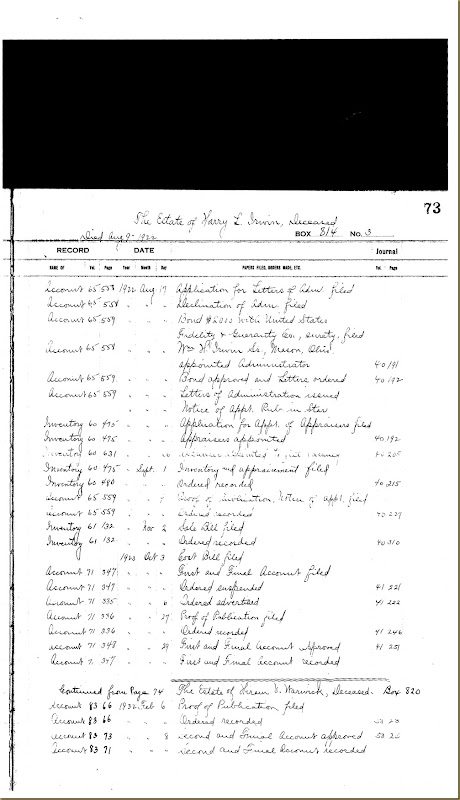 73
The Estate of Harry L. Irwin, Deceased
Died Aug 9- 1922 BOX 814 No. 3
RECORD DATE Journal
NAME OF Vol. Page Year Month Day PAPERS FILED, ORDERS MADE, ETC. Vol. Page
Account 65 558 1922 Aug 17 Application for Letters of Adm. filed
Account 65 558 " " " Declination of Adm. filed
Account 65 559 " " " Bond $2000 with United States
Fidelity & Guaranty Co., surety, filed
Account 65 558 " " " Wm H. Irwin Sr., Mason, Ohio,
appointed Administrator 40 191
Account 65 559 " " " Bond approved and Letters ordered 40 192
Account 65 559 " " " Letters of Administration issued
" " " Notice of Appt. Pub. in Star
Inventory 60 475 " " " Application for Appt. of Appraisers filed
Inventory 60 475 " " " Appraisers appointed 40 192
Inventory 60 631 40 205
Inventory 60 475 " Sept. 1 Inventory and appraisement filed
Inventory 60 480 " " " Ordered recorded 40 215
Account 65 559 " " Proof of Publication, Notice of appt. filed
Account 65 559 " " " Ordered recorded 40 227
Inventory 61 132 " Nov 2 Sale Bill filed
Inventory 61 132 " " " Ordered recorded 40 310
1923 Oct 3 Cost Bill filed
Account 71 347 " " " First and Final Account filed
Account 71 347 " " " Ordered suspended 41 221
Account 71 335 " " 6 Ordered advertised 41 222
Account 71 336 " " 27 Proof of Publication filed
Account 71 336 " " " Ordered recorded 41 246
Account 71 348 " " 29 First and Final Account Approved 41 251
Account 7 347 " " " First and Final Account recorded
Continued from Page 74 The Estate of Hiram S. Warwick, Deceased. Box 820
Account 83 66 1932 Feb 6 Proof of Publication filed
Account 83 66 " " " Ordered recorded 53 23
Account 83 73 " " 8 Second and Final Account approved 53 25
Account 83 71 " " " Second and Final Account recorded